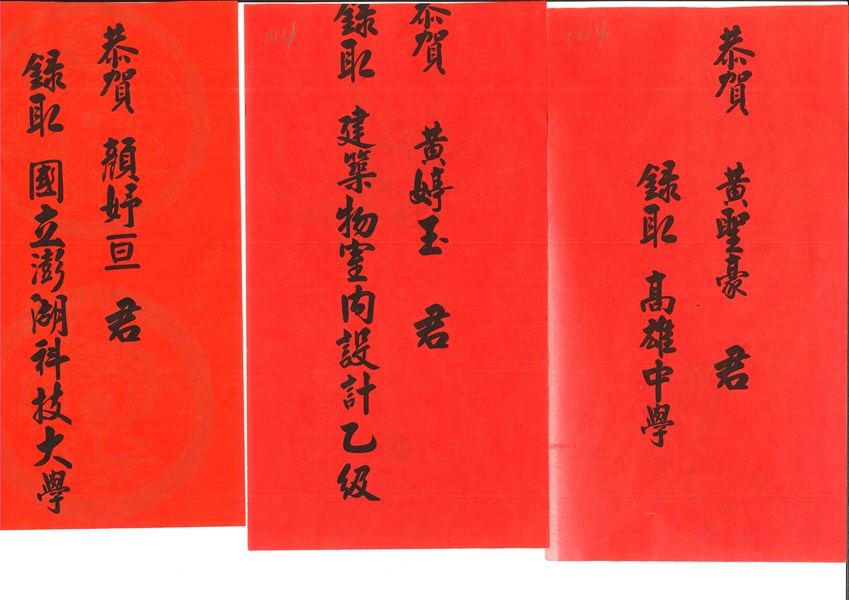 恭賀 黃聖豪 君
錄取 高雄中學
恭賀 黃婷玉 君
錄取 建築物室內設計乙級
恭賀 顏妤亘 君
錄取 國立澎湖科技大學